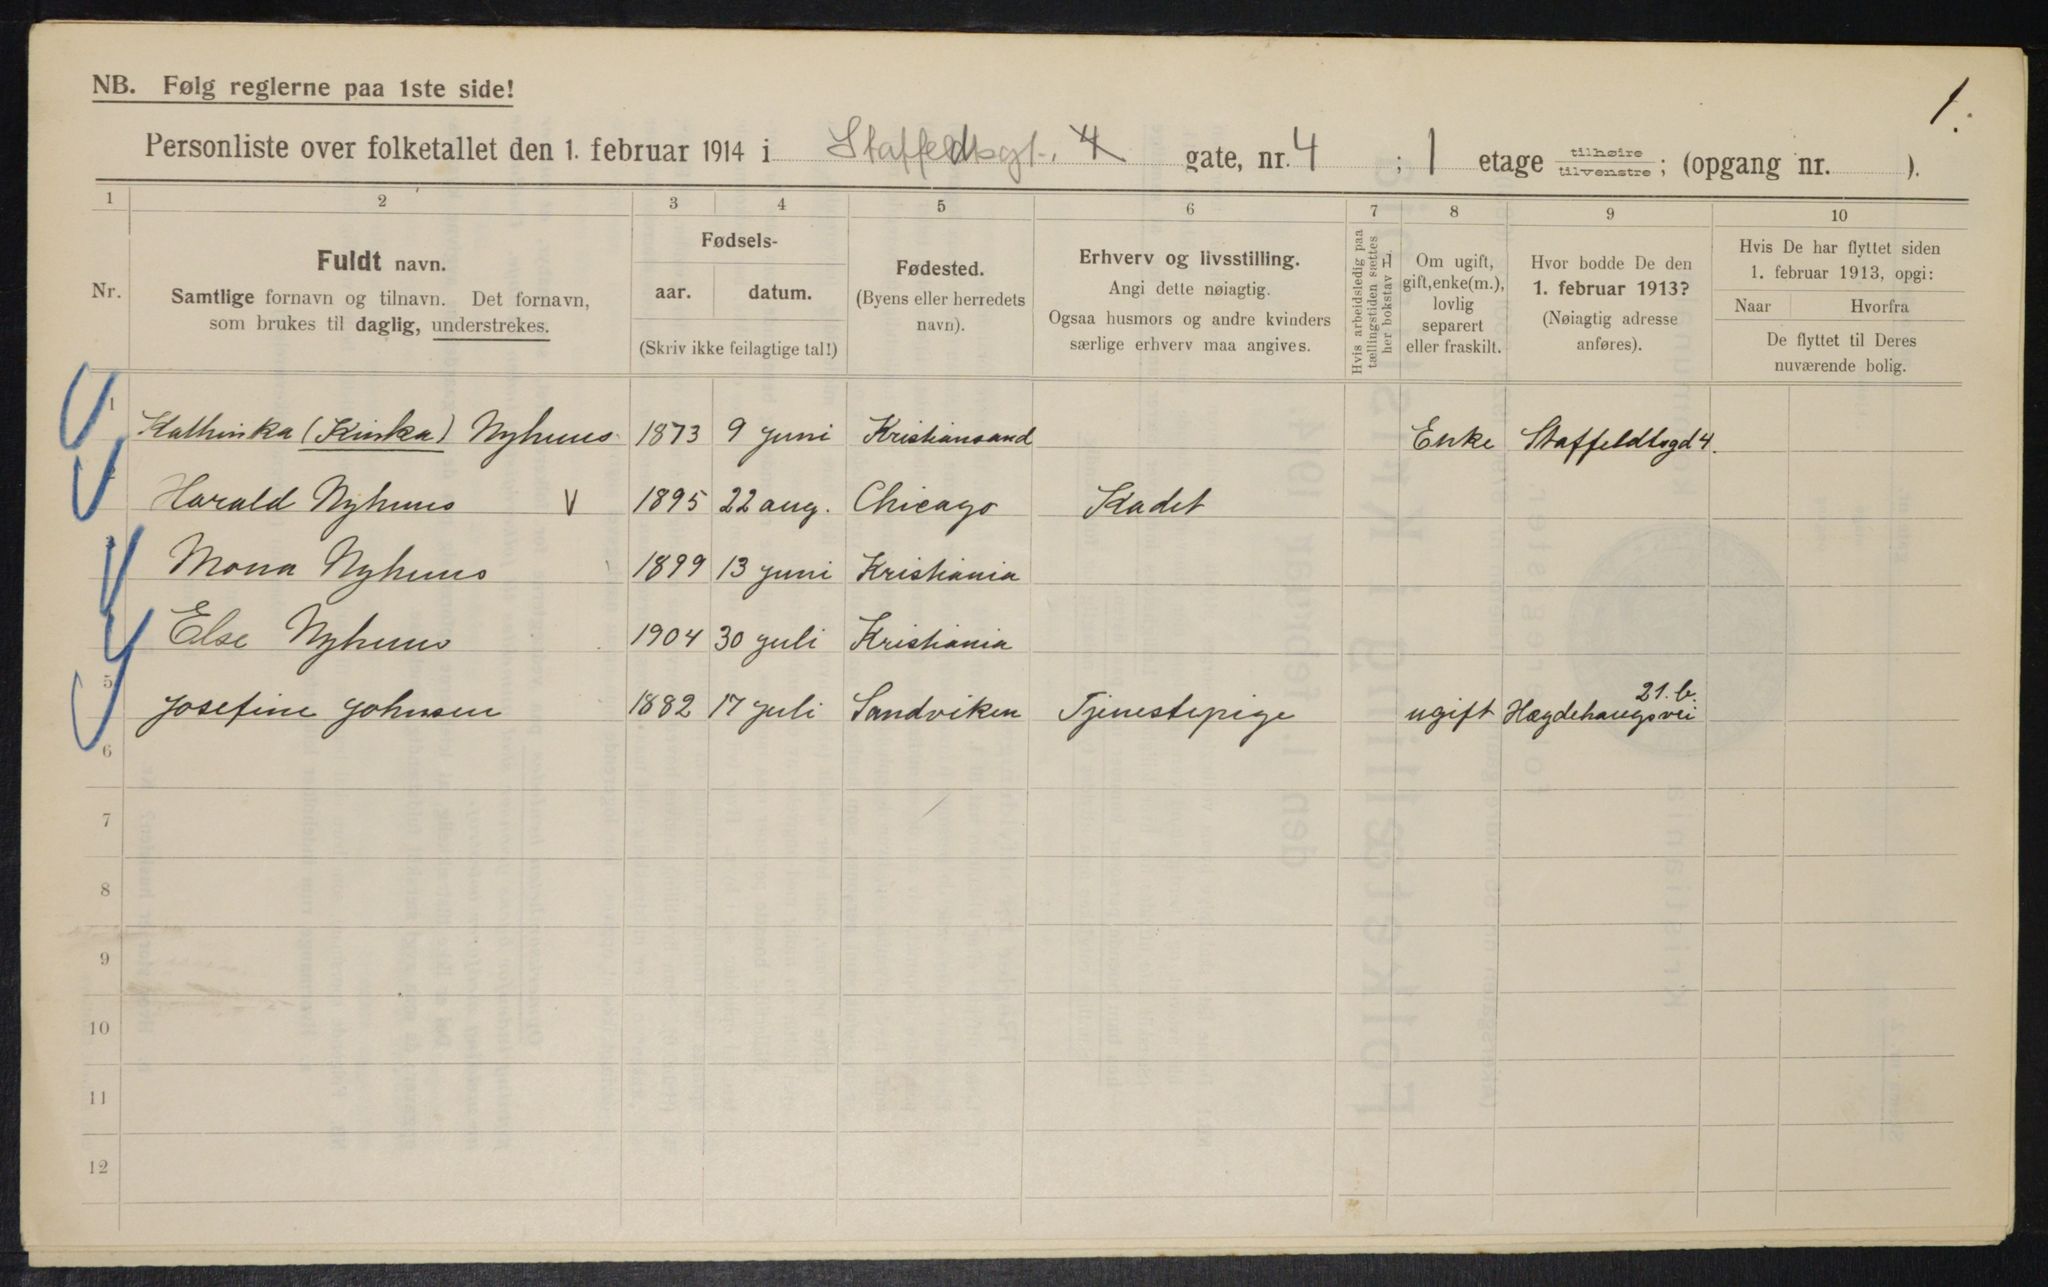 NB. Følg reglerne paa 1ste side!
1.
Personliste over folketallet den 1. februar 1914 i Staffeldtsgt. 4 gate, nr. 4 ; 1 etage tilhøire tilvenstre; (opgang nr. ).
1 2 3 4 5 6 7 8 9 10
Nr.
Fuldt navn.
Samtlige fornavn og tilnavn. Det fornavn,
som brukes til daglig, understrekes.
Fødsels-
aar. datum.
(Skriv ikke feilagtige tal!)
Fødested.
(Byens eller herredets
navn).
Erhverv og livsstilling.
Angi dette nøiagtig.
Ogsaa husmors og andre kvinders
særlige erhverv maa angives.
Hvis arbeidsledig paa
tællingstiden sættes
her bokstav L
Om ugift,
gift, enke(m.),
lovlig
separert
eller fraskilt.
Hvor bodde De den
1. februar 1913?
(Nøiagtig adresse
anføres).
Hvis De har flyttet siden
1. februar 1913, opgi:
Naar Hvorfra
De flyttet til Deres
nuværende bolig.
1 Kathinka (Kinka) Nyhuus 1873 9 juni Kristiansand Enke Staffeldtsgd 4.
Harald Nyhuus V 1895 22 aug. Chicago Kadet
Mona Nyhuus 1899 13 juni Kristiania
Else Nyhuus 1904 30 juli Kristiania
5 Josefine Johnsen 1882 17 juli Sandviken Tjenestepige ugift Hægdehaugsvei 21.b.
6
7
8
9
10
11
12